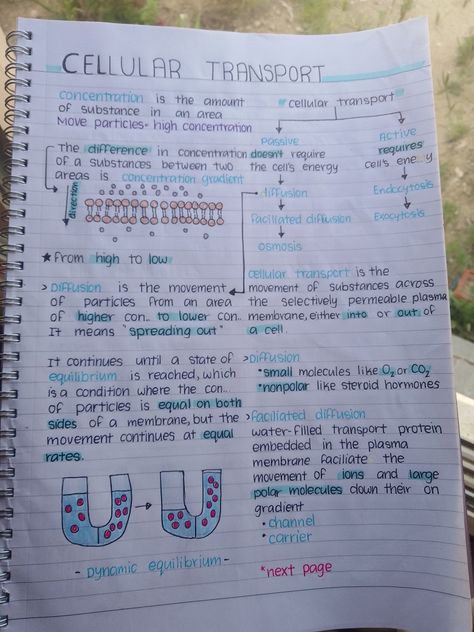 CELLULAR TRANSPORT
concentration is the amount
of substance in an area
Move particles= high concentration
The difference in concentration
of a substances between two
areas is concentration gradient
direction
★ from high to low
> Diffusion is the movement
of particles from an area
of higher con.. to lower con..
It means "spreading out"
It continues until a state of
equilibrium is reached, which
is a condition where the con..
of particles is equal on both
sides of a membrane, but the
movement continues at equal
rates.
- Dynamic equilibrium -
cellular transport
Passive
doesn't require
the cell's energy
diffusion
Faciliated diffusion
osmosis
Active
requires
cell's energy
Endocytosis
Exocytosis
cellular transport is the
movement of substances across
the selectively permeable plasma
membrane, either into or out of
a cell.
> Diffusion
•small molecules like O₂ or CO₂
•nonpolar like steroid hormones
> Faciliated diffusion
water-filled transport protein
embedded in the plasma
membrane faciliate the
movement of ions and large
polar molecules down their on
gradient
• channel
• carrier
*next page